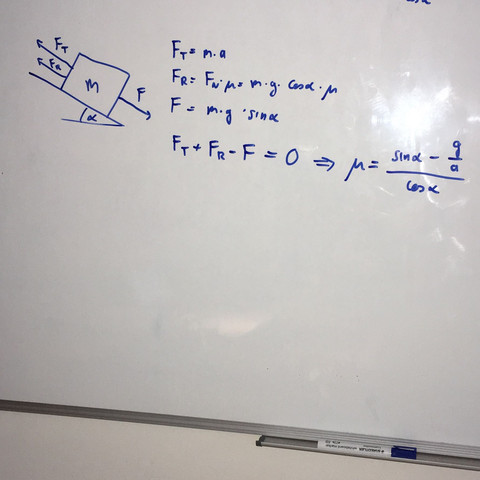 F_T
F_R
m
F
α
F_T = m · a
F_R = F_N · μ = m · g · cosα · μ
F = m · g · sinα
F_T + F_R - F = 0 ⇒ μ = (sinα - g/a)/cosα